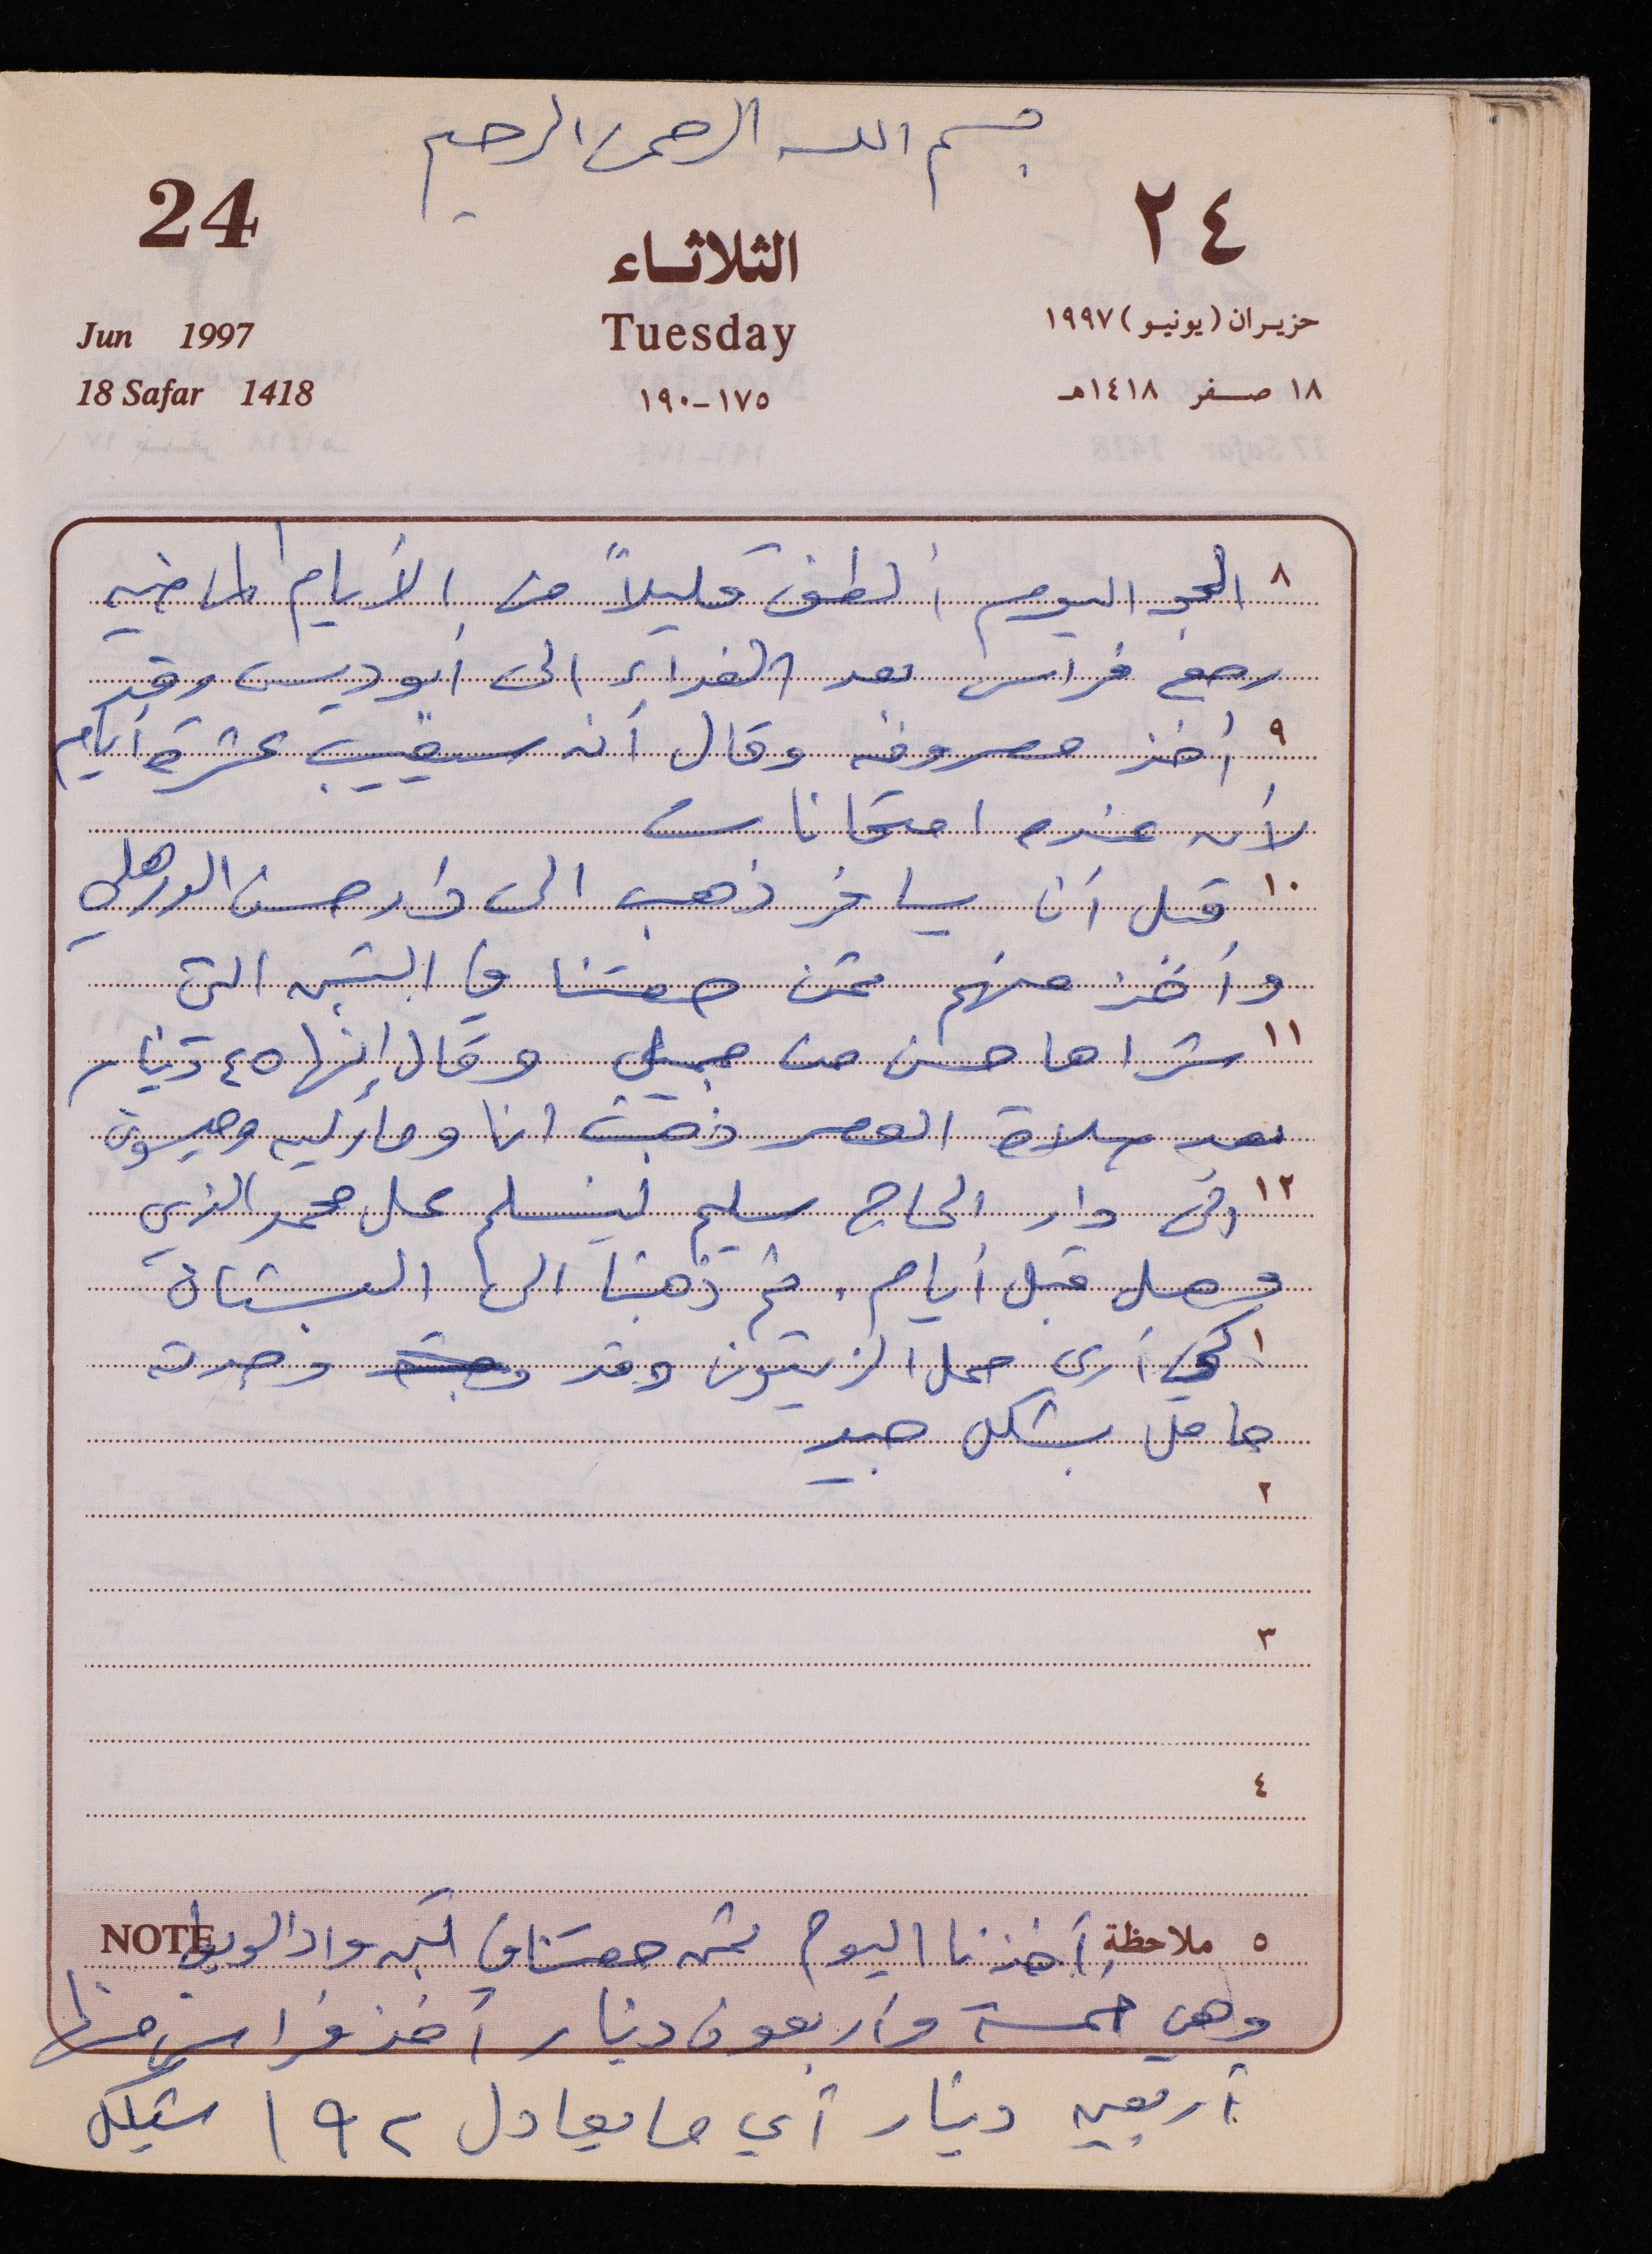 بسم الله الرحمن الرحيم
24
٢٤
الثلاثاء
Jun 1997
Tuesday
حزيران (يونيو) ١٩٩٧
18 Safar 1418
١٧٥-١٩٠
١٨ صفر ١٤١٨هـ
٨ الجو اليوم ألطف قليلاً من الأيام الماضية
رجع فراس بعد الغداء الى أبوديس وقد
٩ أخذ مصروفه وقال أنه سيغيب عشرة أيام
لأن عنده امتحانات
١٠ قبل أن يسافر ذهب الى دار حسن
وأخذ منهم ثمن حصتنا في التبن التي
١١ شراها حسن من جميل وقال إنها ٤٥ دينار
بعد صلاة العصر ذهبت انا و وميسون
١٢ الى دار الحاج سليم لنسلم على محمد الذي
وصل قبل أيام. ثم ذهبنا الى البستان
١ لكي أرى حمل الزيتون وقد وجدته
حامل بشكل جيد
٢
٣
٤
٥ ملاحظة أخذنا اليوم ثمن حصتنا في تبن واد NOTE
وهي خمسة وأربعون دينار أخذ فراس منها
أربعين دينار أي ما يعادل ١٩٢ شيكل